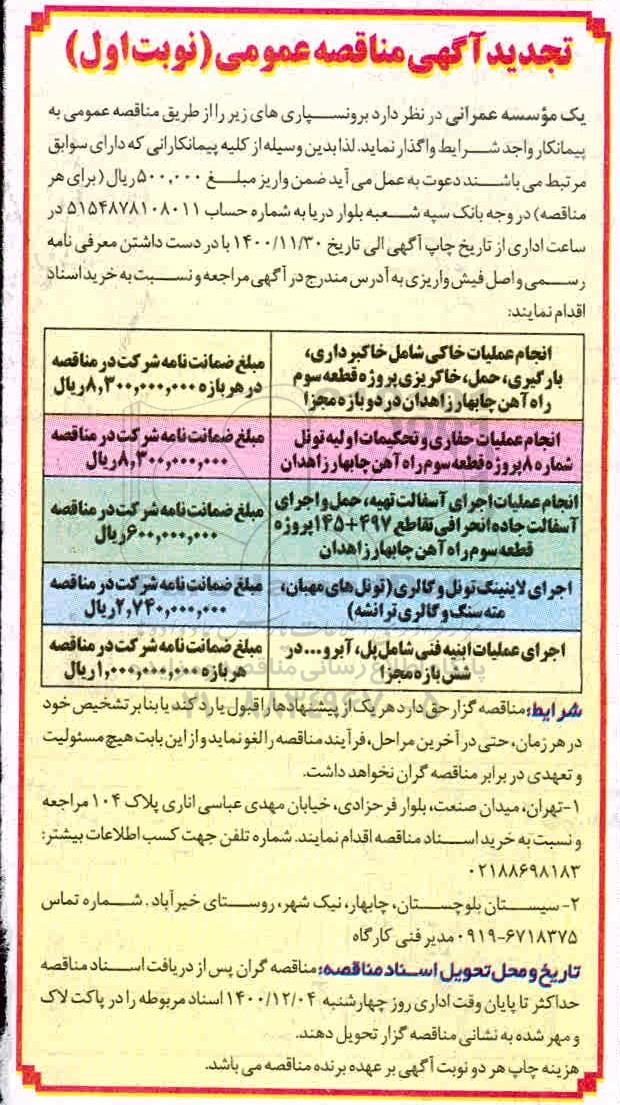 تجدید آگهی مناقصه عمومی (نوبت اول)
یک مؤسسه عمرانی در نظر دارد برونسپاری های زیر را از طریق مناقصه عمومی به
پیمانکار واجد شرایط واگذار نماید. لذا بدین وسیله از کلیه پیمانکارانی که دارای سوابق
مرتبط می باشند دعوت به عمل می آید ضمن واریز مبلغ ۵۰۰,۰۰۰ ریال (برای هر
مناقصه) در وجه بانک سپه شعبه بلوار دریا به شماره حساب ۵۱۵۴۸۷۸۱۰۸۰۱۱ در
ساعت اداری از تاریخ چاپ آگهی الی تاریخ ۱۴۰۰/۱۱/۳۰ با در دست داشتن معرفی نامه
رسمی و اصل فیش واریزی به آدرس مندرج در آگهی مراجعه و نسبت به خرید اسناد
اقدام نمایند:
انجام عملیات خاکی شامل خاکبرداری،
بارگیری، حمل، خاکریزی پروژه قطعه سوم
راه آهن چابهار زاهدان در دو بازه مجزا
مبلغ ضمانت نامه شرکت در مناقصه
در هر بازه ۸,۳۰۰,۰۰۰,۰۰۰ ریال
انجام عملیات حفاری و تحکیمات اولیه تونل
شماره ۸ پروژه قطعه سوم راه آهن چابهار زاهدان
مبلغ ضمانت نامه شرکت در مناقصه
۸,۳۰۰,۰۰۰,۰۰۰ ریال
انجام عملیات اجرای آسفالت تهیه، حمل و اجرای
آسفالت جاده انحرافی تقاطع ۴۹۷+۱۴۵ پروژه
قطعه سوم راه آهن چابهار زاهدان
مبلغ ضمانت نامه شرکت در مناقصه
۶۰۰,۰۰۰,۰۰۰ ریال
اجرای لاینینگ تونل و گالری (تونل های مهبان،
مته سنگ و گالری ترانشه)
مبلغ ضمانت نامه شرکت در مناقصه
۲,۷۴۰,۰۰۰,۰۰۰ ریال
اجرای عملیات ابنیه فنی شامل پل، آبرو ... در
شش بازه مجزا
مبلغ ضمانت نامه شرکت در مناقصه
هر بازه ۱,۰۰۰,۰۰۰,۰۰۰ ریال
شرایط: مناقصه گزار حق دارد هر یک از پیشنهادها را قبول یا رد کند یا بنابر تشخیص خود
در هر زمان، حتی در آخرین مراحل، فرآیند مناقصه را لغو نماید و از این بابت هیچ مسئولیت
و تعهدی در برابر مناقصه گران نخواهد داشت.
۱-تهران، میدان صنعت، بلوار فرحزادی، خیابان مهدی عباسی اناری پلاک ۱۰۴ مراجعه
و نسبت به خرید اسناد مناقصه اقدام نمایند. شماره تلفن جهت کسب اطلاعات بیشتر:
۰۲۱۸۸۶۹۸۱۸۳
۲- سیستان بلوچستان، چابهار، نیک شهر، روستای خیرآباد. شماره تماس
۰۹۱۹-۶۷۱۸۳۷۵ مدیر فنی کارگاه
تاریخ و محل تحویل اسناد مناقصه: مناقصه گران پس از دریافت اسناد مناقصه
حداکثر تا پایان وقت اداری روز چهارشنبه ۱۴۰۰/۱۲/۰۴ اسناد مربوطه را در پاکت لاک
و مهر شده به نشانی مناقصه گزار تحویل دهند.
هزینه چاپ هر دو نوبت آگهی بر عهده برنده مناقصه می باشد.